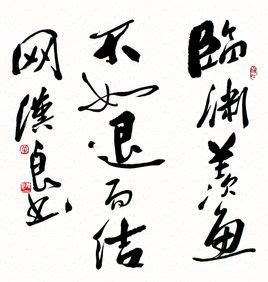 臨渊羡鱼
不如退而结
网漢良书